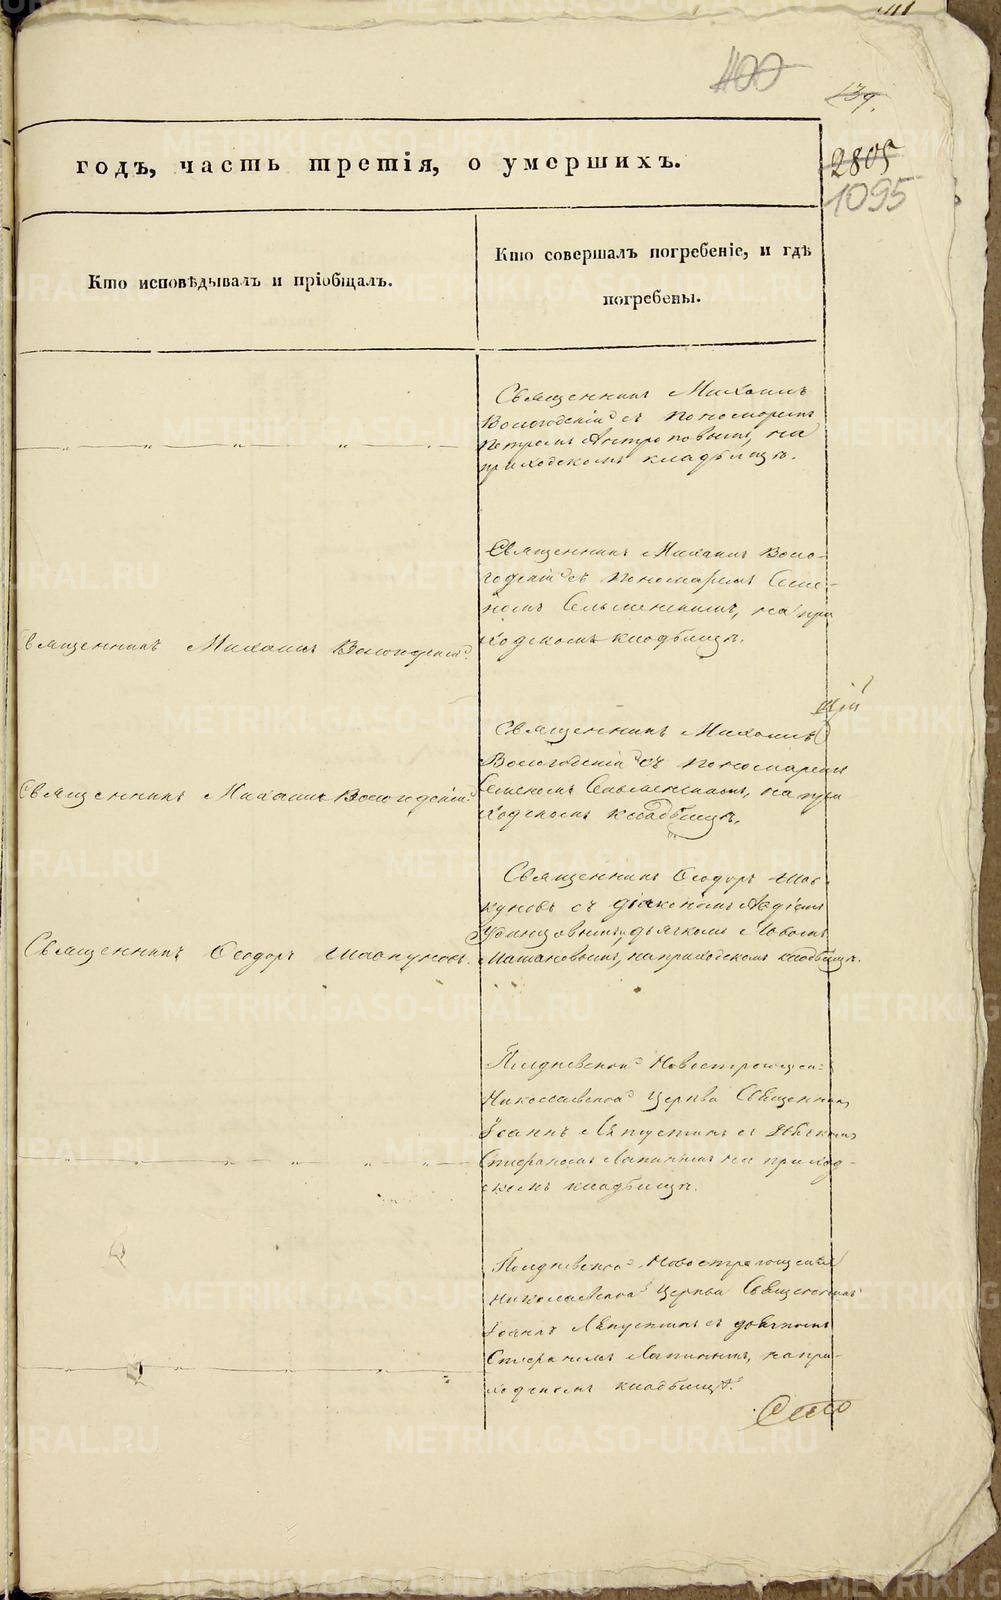 400
139.
2805
1095
годъ, часть третія, о умершихъ.
Кто исповѣдывалъ и пріобщалъ.
Кто совершалъ погребеніе, и гдѣ
погребены.
Священникъ Михаилъ
Вологодскій съ пономаремъ
Петромъ Антроповымъ, на
приходскомъ кладбищѣ.
Священникъ Михаилъ Вологодскій.
Священникъ Михаилъ Воло-
годскій съ пономаремъ Семе-
номъ на при
ходскомъ кладбищѣ.
Священникъ Михаилъ Вологодскій.
Священникъ Михаилъ
Вологодскій съ пономаремъ
Семеномъ на при
ходскомъ кладбищѣ.
Священникъ Ѳеодоръ
Священникъ Ѳеодоръ
съ діакономъ Авдіемъ
Удинцовымъ, дьячкомъ
на приходскомъ кладбищѣ.
Полдневской Новостроющейся
Николаевской Церкви Священникъ
Іоаннъ Ляпустинъ съ Дьячкомъ
Стефаномъ Лапинымъ на приход-
скомъ кладбищѣ.
Полдневской Новостроющейся
Николаевской Церкви Священникъ
Іоаннъ Ляпустинъ съ дьячкомъ
Стефаномъ Лапинымъ, на при-
ходскомъ кладбищѣ.
METRIKI.GASO-URAL.RU